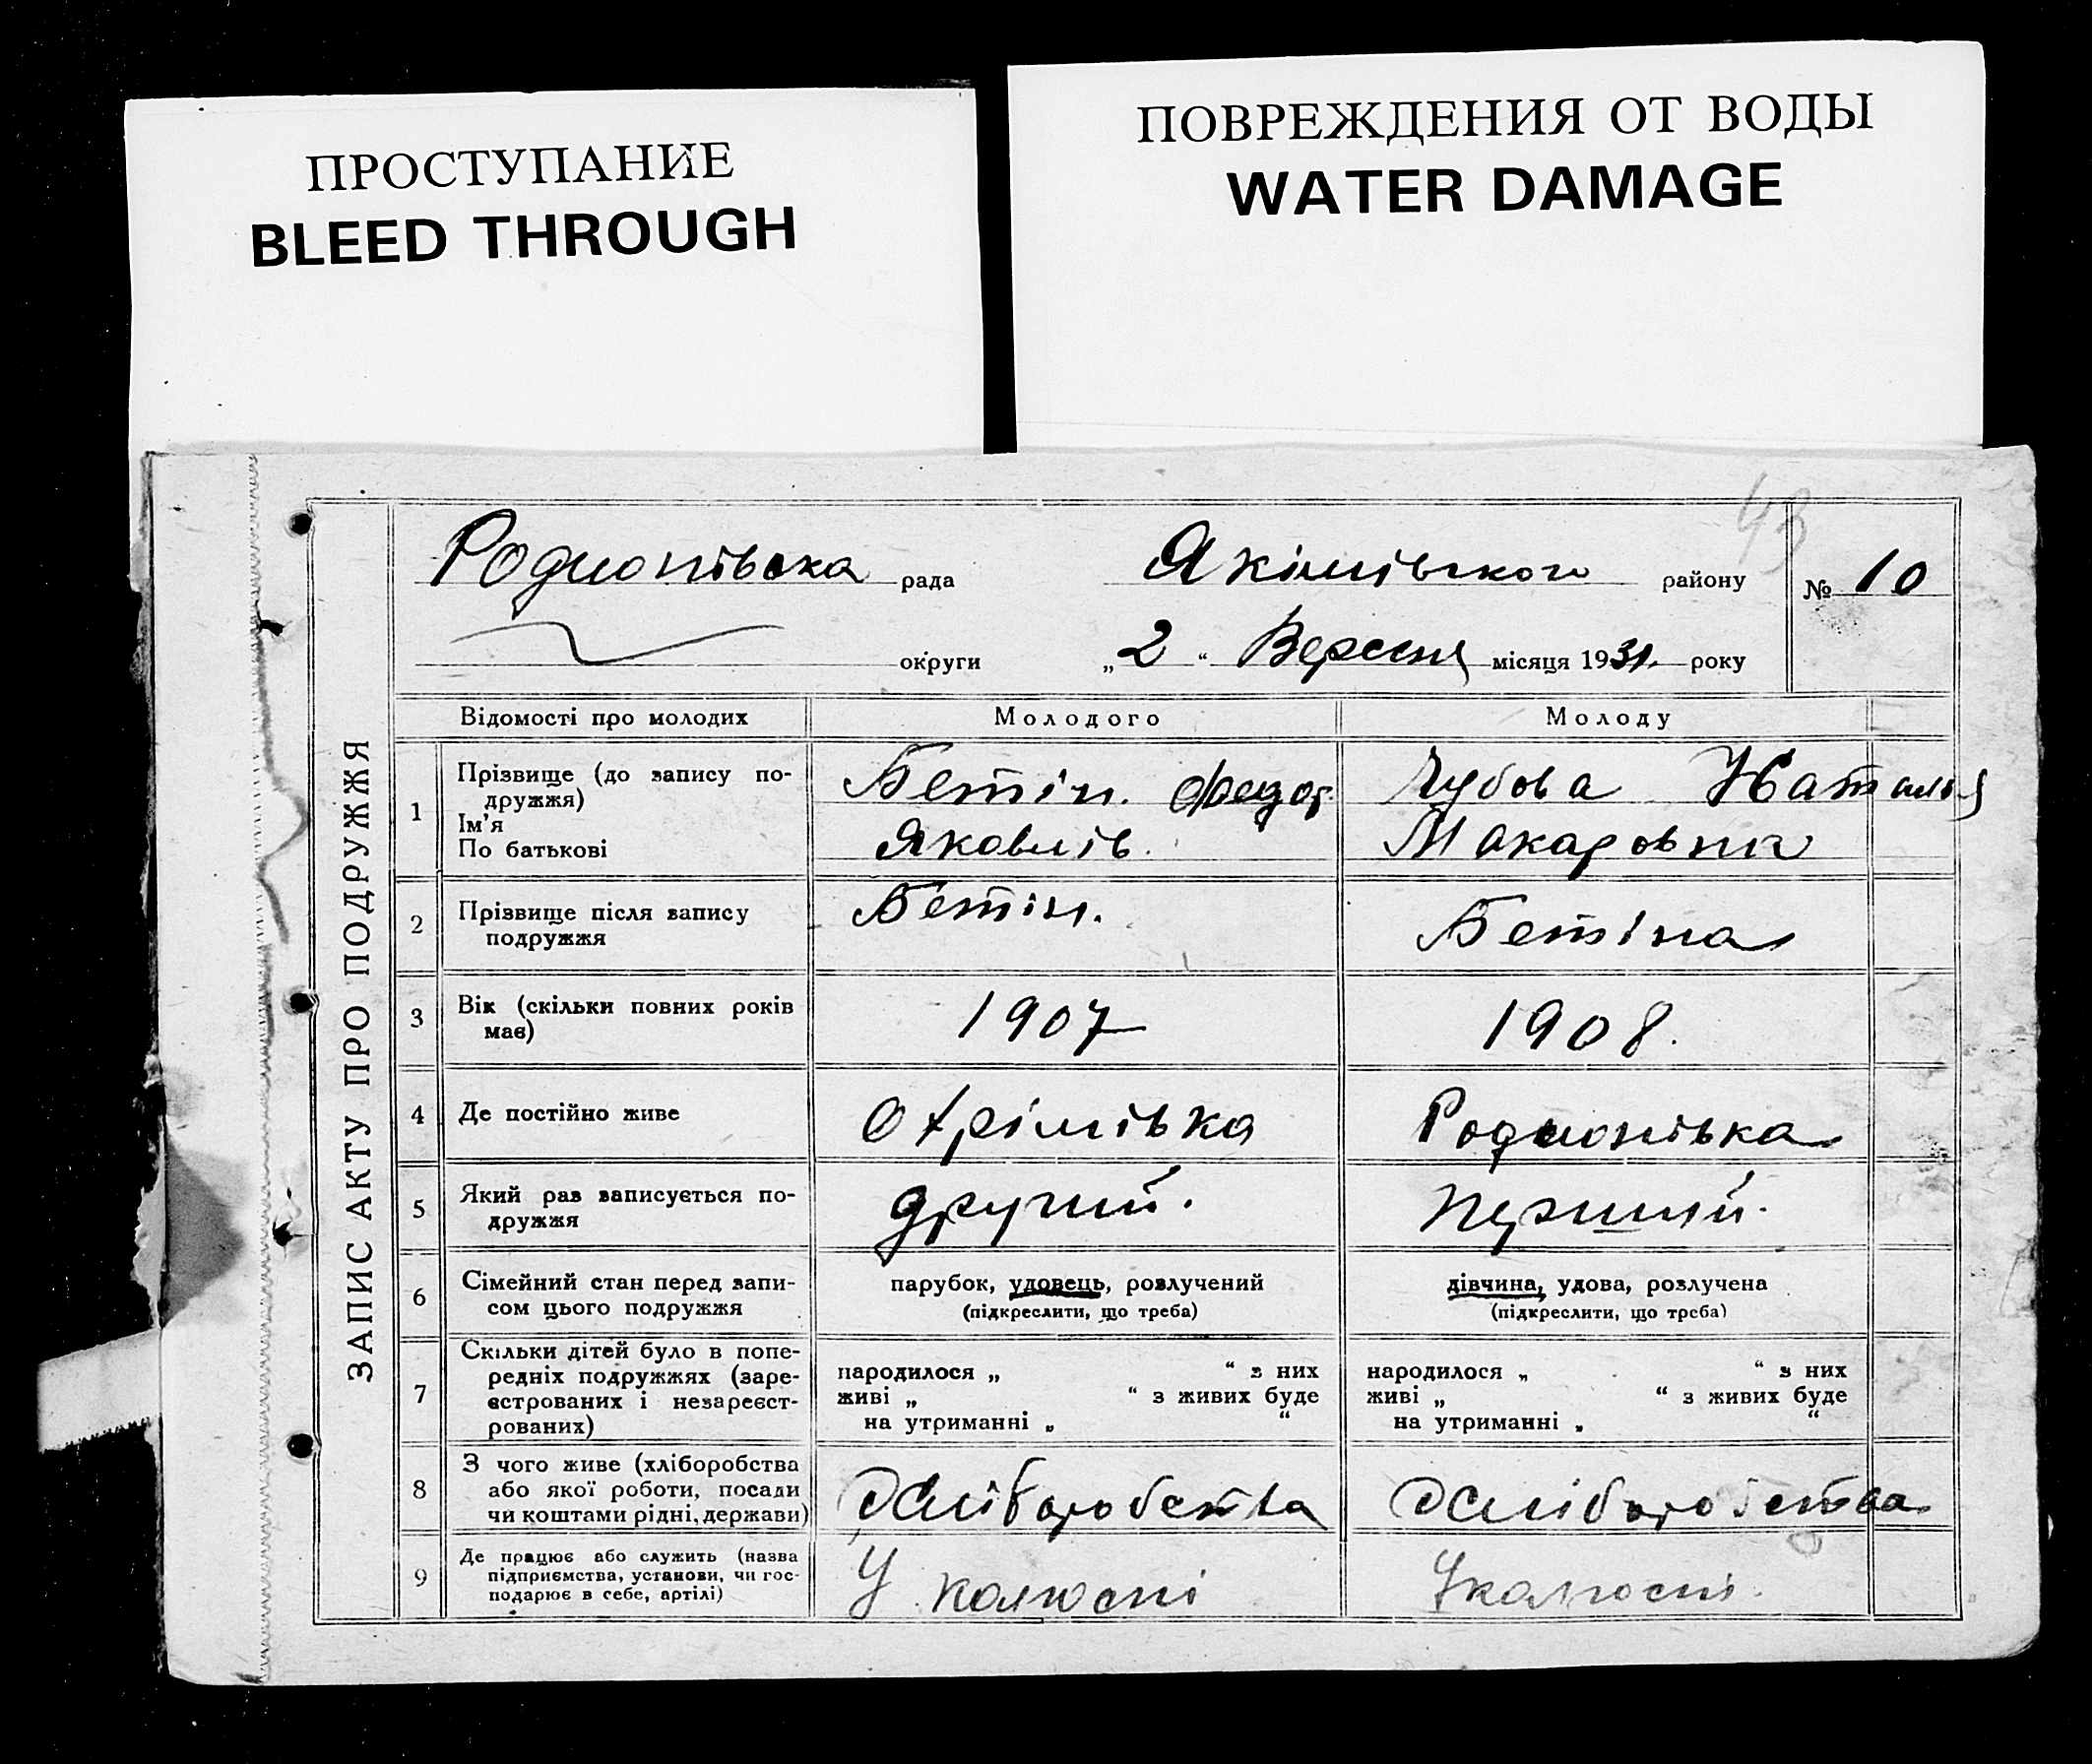 ПРОСТУПАНИЕ
BLEED THROUGH
ПОВРЕЖДЕНИЯ ОТ ВОДЫ
WATER DAMAGE
43
ЗАПИС АКТУ ПРО ПОДРУЖЖЯ
Родионівска рада Якімівського району № 10
округи „ 2 “ Вересня місяця 1931. року
Відомості про молодих Молодого Молоду
1 Прізвище (до запису по-
дружжя)
Ім'я
По батькові
Бетін. Федор
Яковлів.
Чубова Наталья
Макаровна
2 Прізвище після запису
подружжя
Бетін.
Бетіна
3 Вік (скільки повних років
має)
1907
1908.
4 Де постійно живе Охрімівка Родионівка
5 Який раз записується по-
дружжя
другий.
Перший.
6 Сімейний стан перед запи-
сом цього подружжя
парубок, удовець, розлучений
(підкреслити, що треба)
дівчина, удова, розлучена
(підкреслити, що треба)
7 Скільки дітей було в попе-
редніх подружжях (заре-
єстрованих і незареєст-
рованих)
народилося „ “ з них
живі „ “ з живих буде
на утриманні „ “
народилося „ “ з них
живі „ “ з живих буде
на утриманні „ “
8 З чого живе (хліборобства
або якої роботи, посади
чи коштами рідні, держави)
Хліборобства
Хліборобства
9 Де працює або служить (назва
підприємства, установи, чи гос-
подарює в себе, артілі)
У колгоспі
У колгоспі.